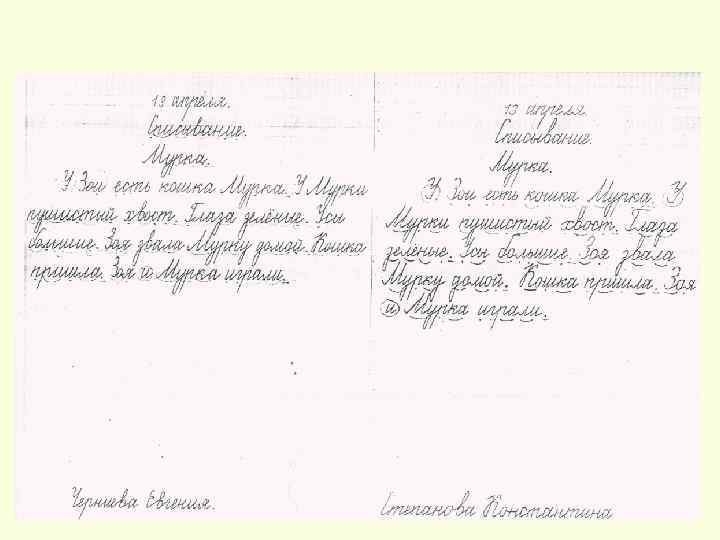 13 апреля.
Списывание.
Мурка.
У Зои есть кошка Мурка. У Мурки
пушистый хвост. Глаза зелёные. Усы
большие. Зоя звала Мурку домой. Кошка
пришла. Зоя и Мурка играли.
Черниева Евгения.
13 апреля.
Списывание.
Мурка.
У Зои есть кошка Мурка. У
Мурки пушистый хвост. Глаза
зелёные. Усы большие. Зоя звала
Мурку домой. Кошка пришла. Зоя
и Мурка играли.
Степанова Константина